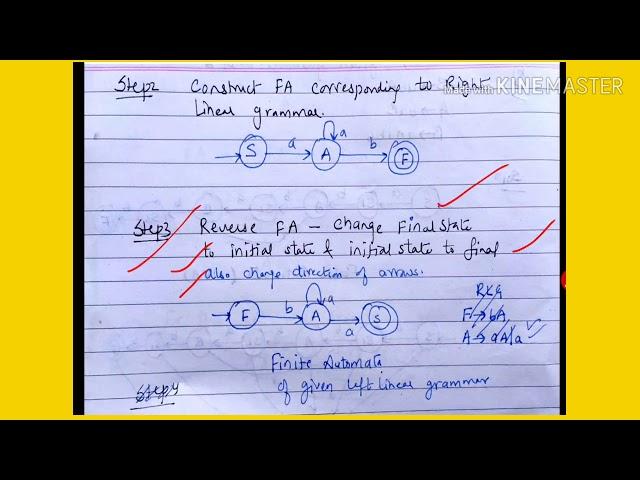 Step2 Construct FA corresponding to Right
Linear grammar.
Made with KINEMASTER
a
S a A b F
Step3 Reverse FA – Change Final State
to initial state & initial state to final
also change direction of arrows.
a
F b A a S
RLG
F → bA
A → aA/a
Finite Automata
of given left linear grammar
Step4